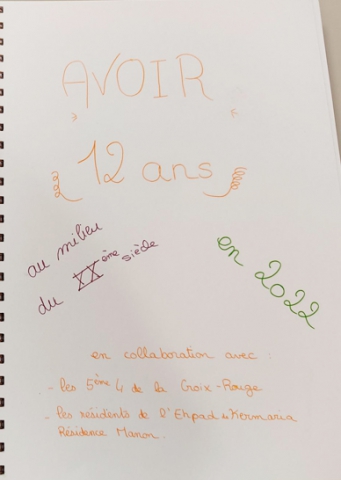 AVOIR
12 ans
au milieu
du XXème siècle
en 2022
en collaboration avec :
- les 5ème 4 de la Croix-Rouge
- les résidents de l'Ehpad de Kermaria
Résidence Manon.